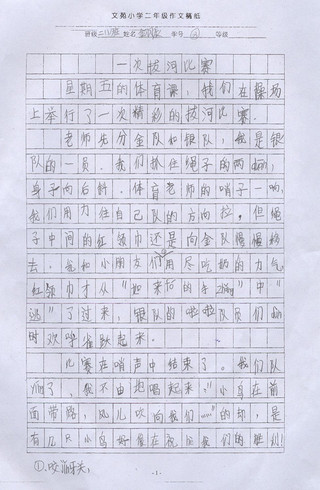 文苑小学二年级作文稿纸
班级 二(1)班 姓名 学号 等级
一次拔河比赛
星期五的体育课,我们在操场
上举行了一次精彩的拔河比赛。
老师先分金队和银队,我是银
队的一员。我们抓住绳子的两duān,
身子向后斜。体育老师的哨子一响,
我们用力往自己队的方向拉,但绳
子中间的红领巾还是向金队慢慢移
去。我和小朋友们用尽吃奶的力气,
红领巾才从“ 的手zhōng”中“
逃”了过来,银队的啦啦队员们dùn
时欢呼雀跃起来。
比赛在哨声中结束了。我们队
yíng了,我不由地唱起来:“小鸟在前
面带路,风儿吹向我们……”的却,是
有几只小鸟好像在祝贺我们的胜利!
①.咬 牙关,
-1-